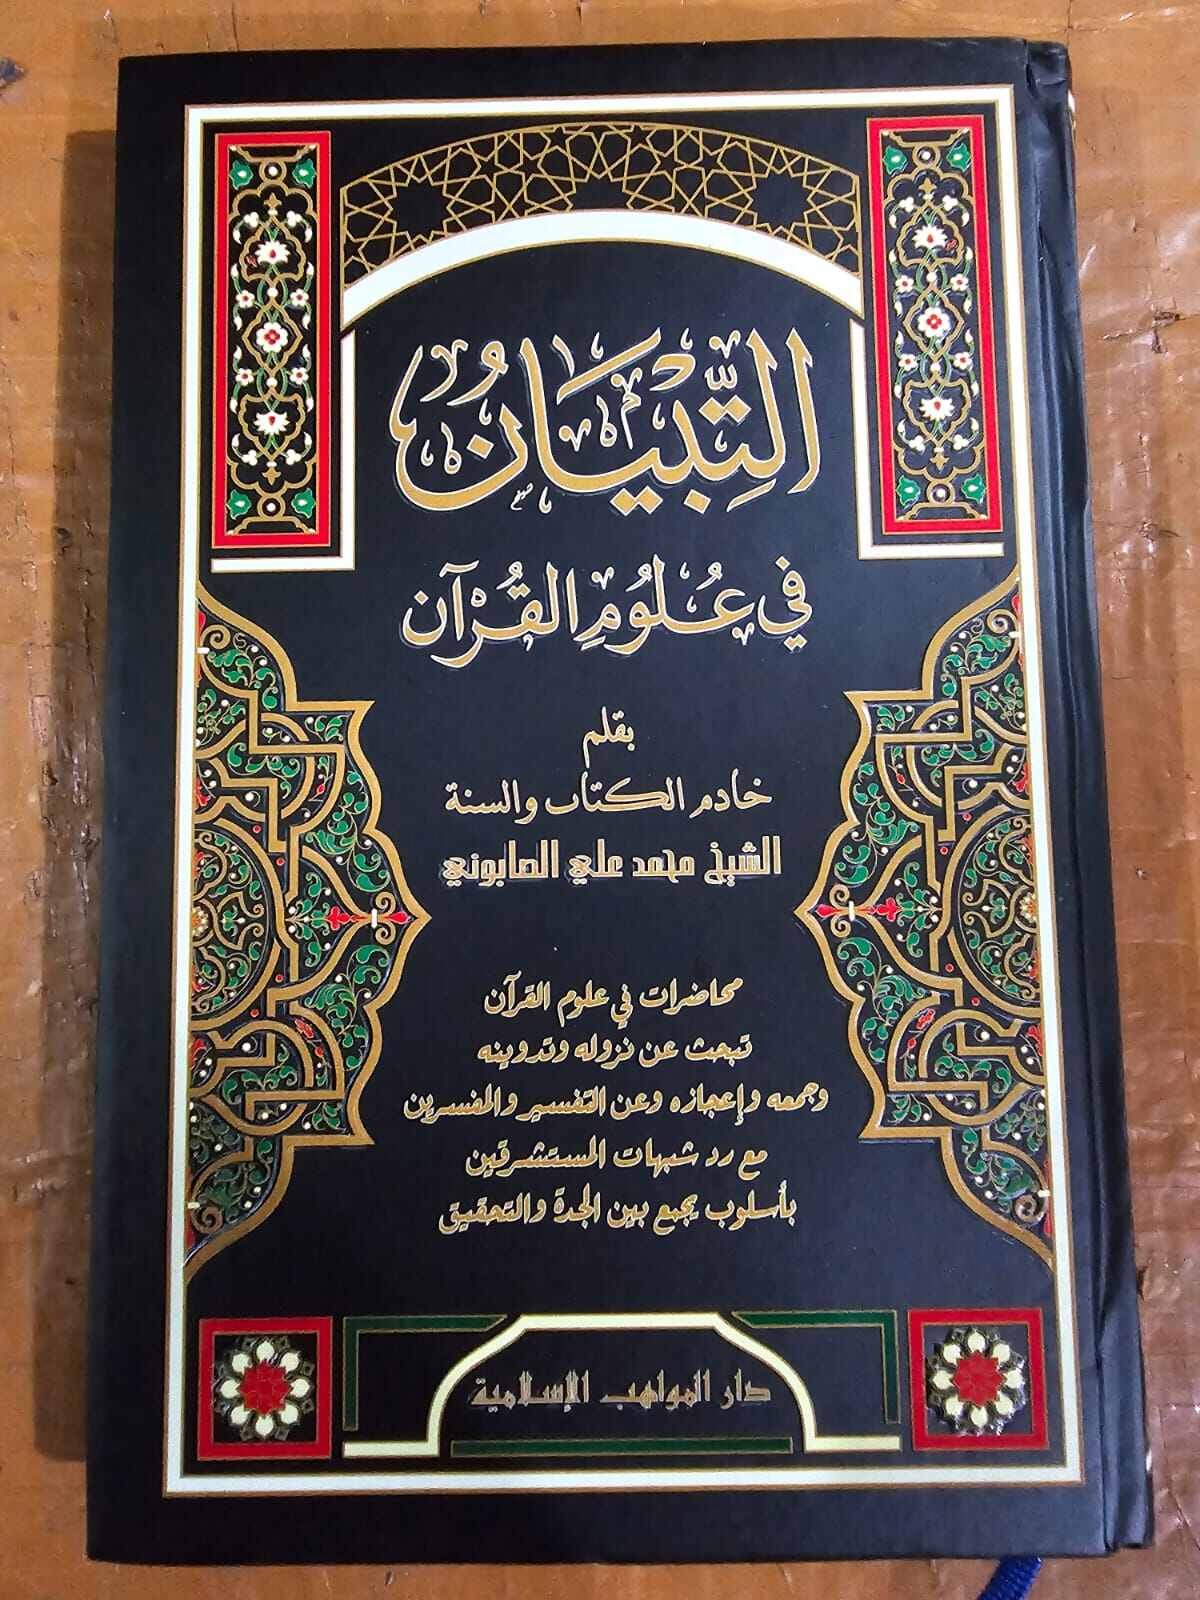 التِّبْيَانُ
في عُلُومِ القُرْآن
بقلم
خادم الكتاب والسنة
الشيخ محمد علي الصابوني
محاضرات في علوم القرآن
تبحث عن نزوله وتدوينه
وجمعه وإعجازه وعن التفسير والمفسرين
مع رد شبهات المستشرقين
بأسلوب يجمع بين الجدة والتحقيق
دار المواهب الإسلامية